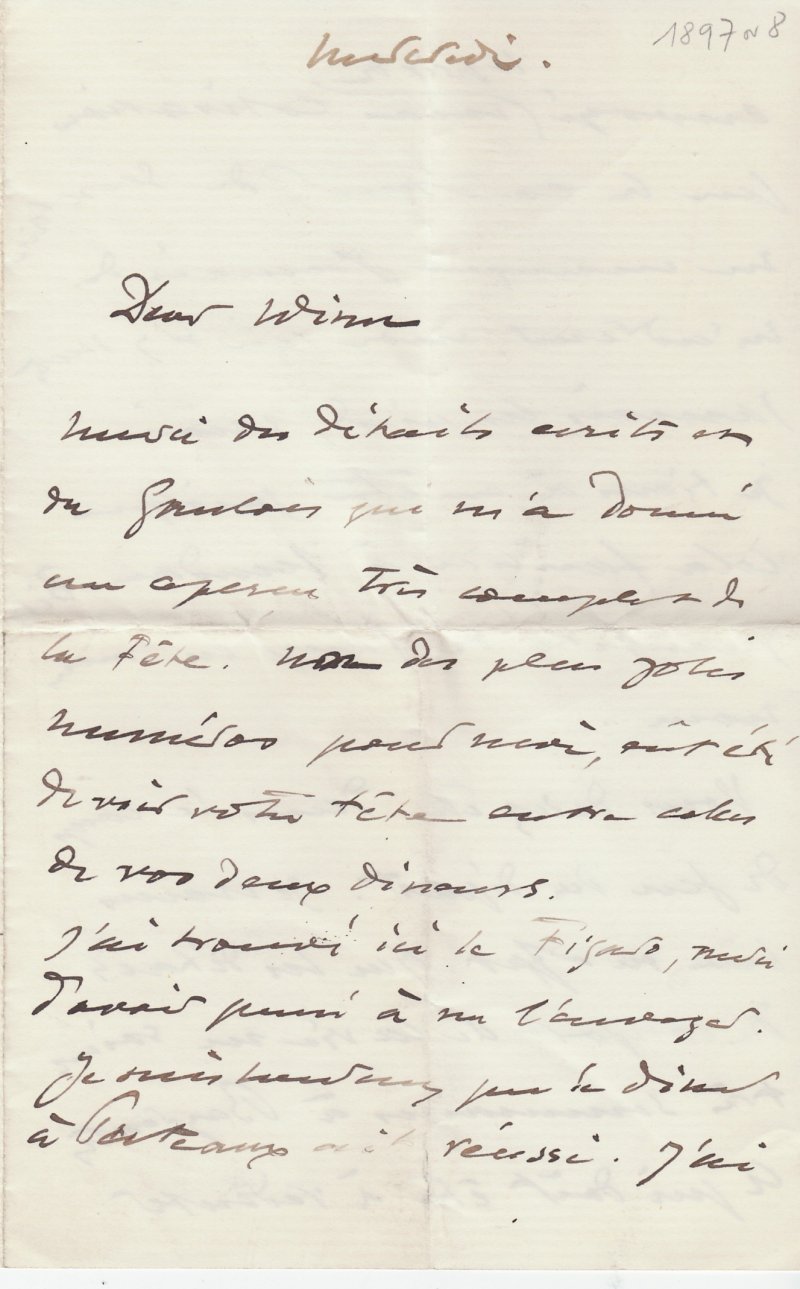 1897 or 8
Mercredi.
Dear
merci des détails écrits et
du Gaulois qui m'a donné
un aperçu très complet de
la Fête. des plus jolis
numéros pour moi, eût été
de voir votre tête entre celles
de vos deux dineurs.
J'ai trouvé ici le Figaro, merci
d'avoir pensé à me l'envoyer.
Je suis heureux que le diner
à Puteaux ait réussi. J'ai